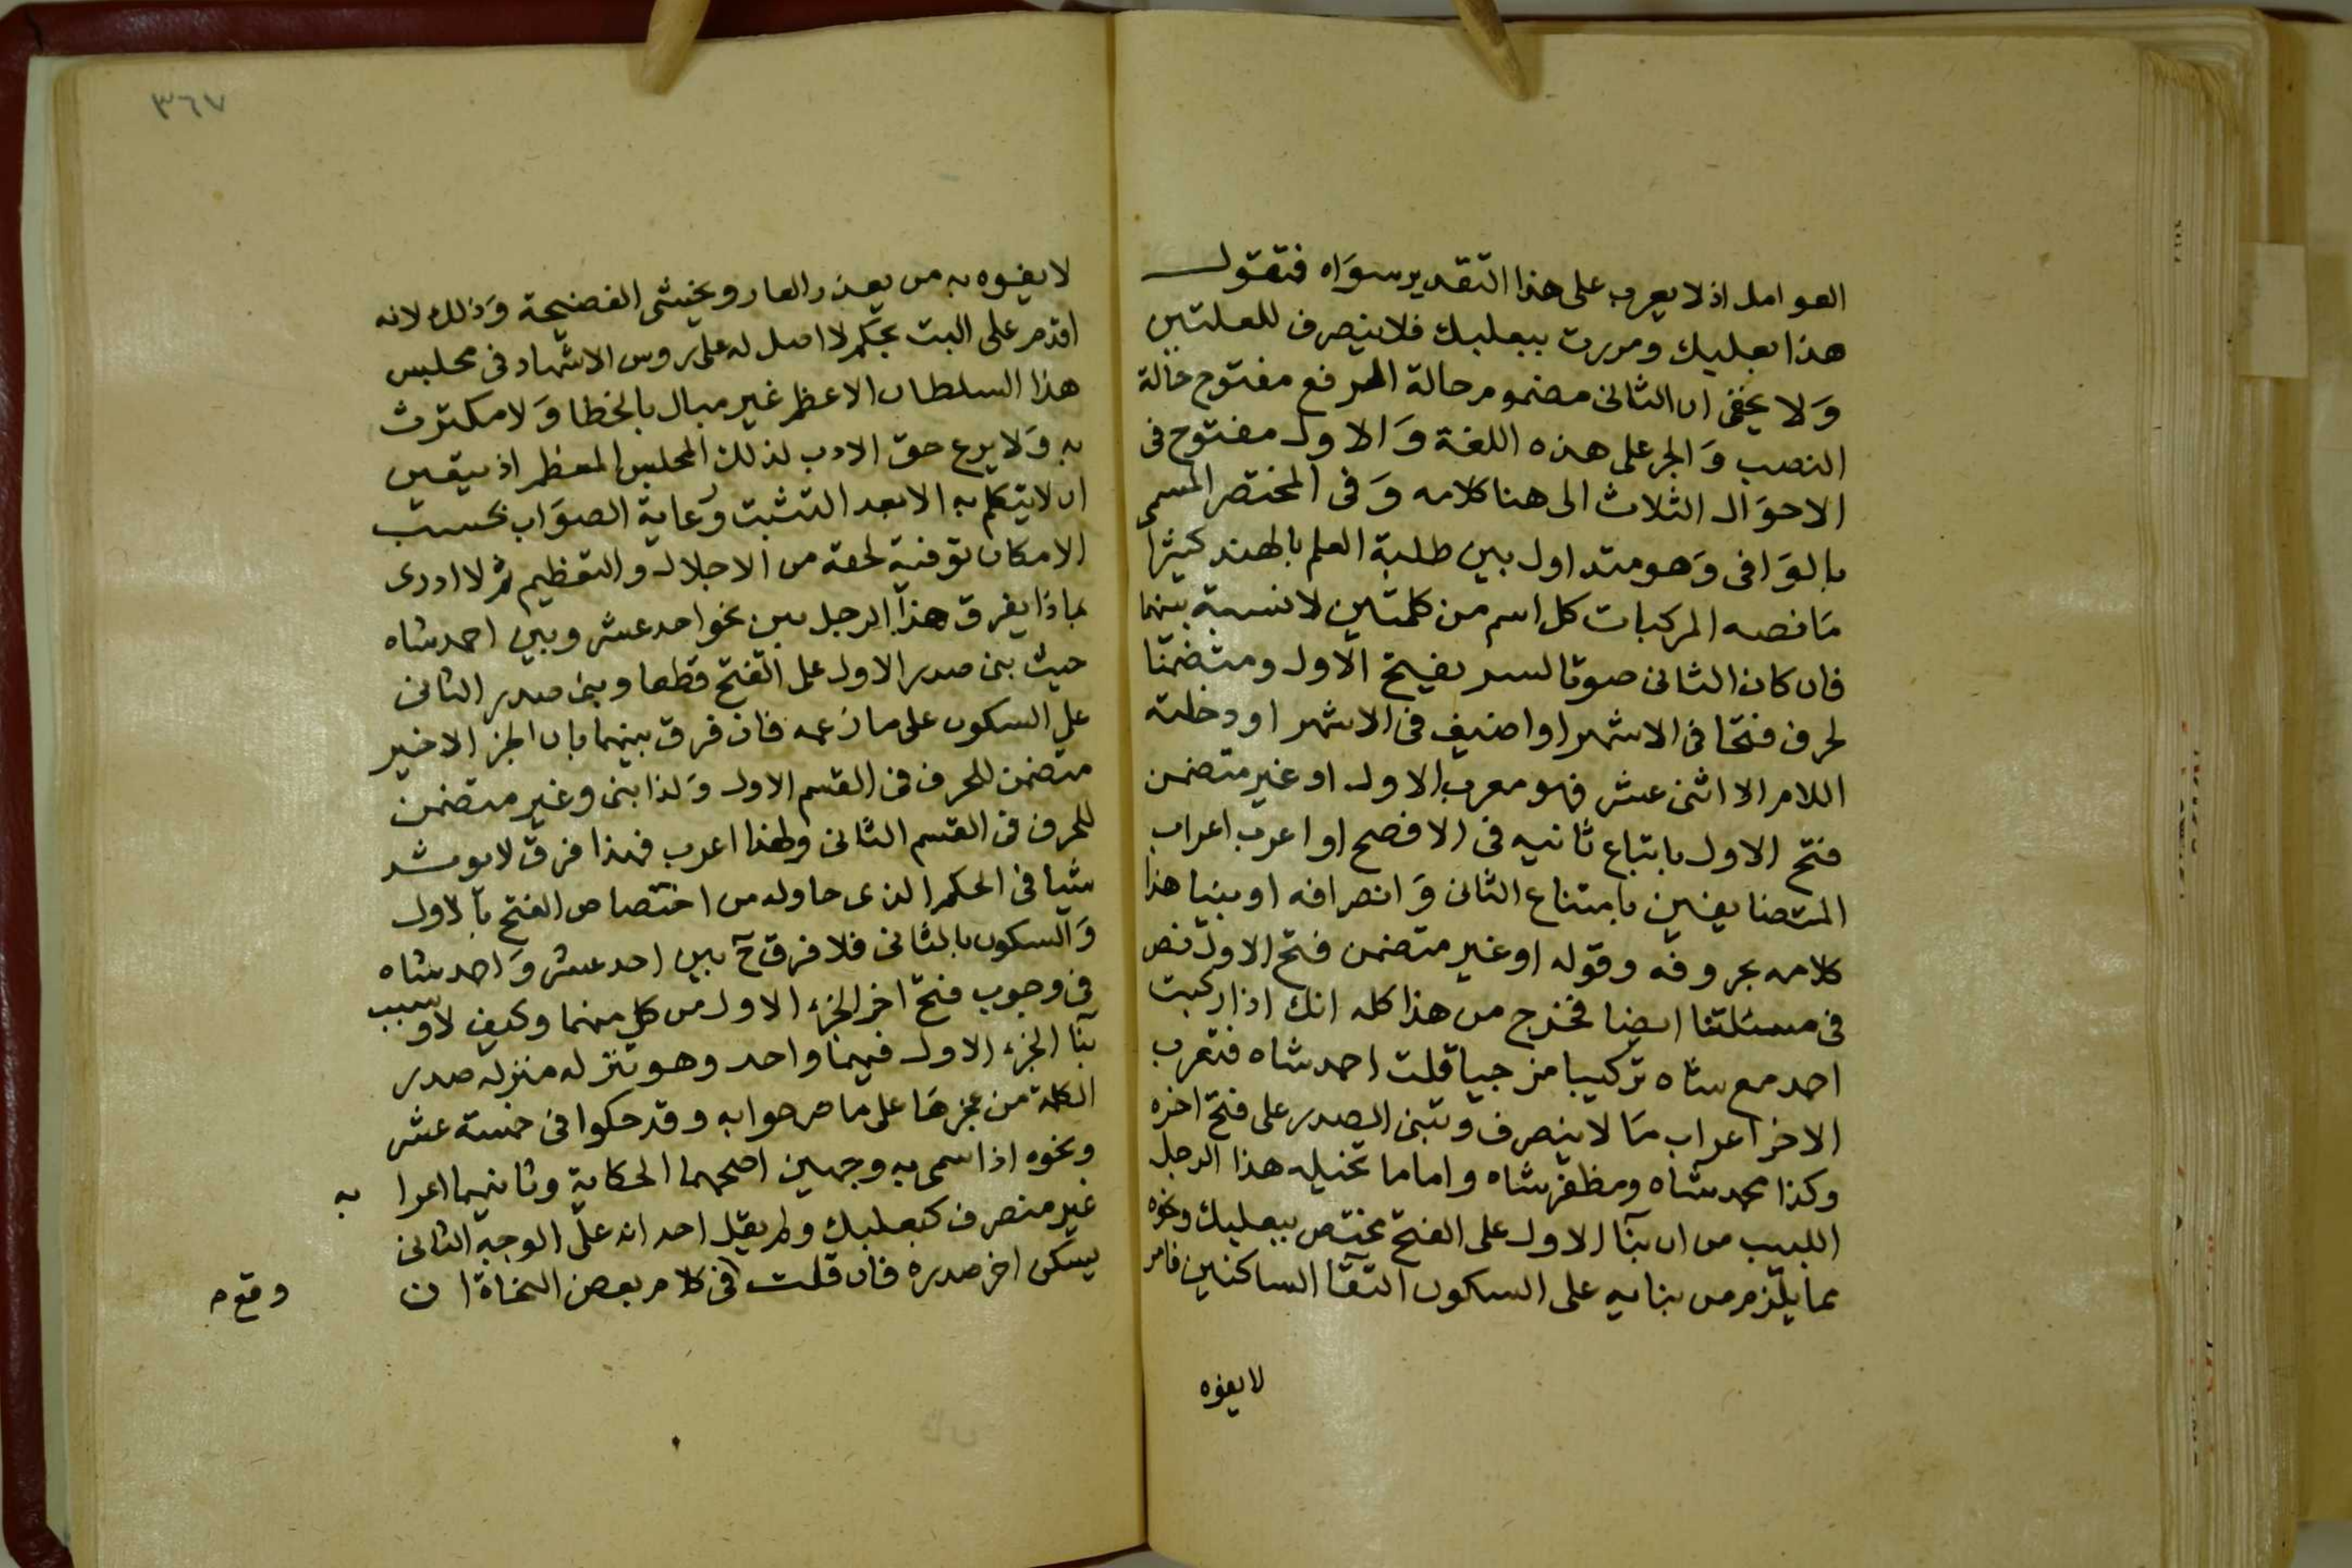 العوامل اذ لا يعرب على هذا التقدير سواه فتقول
هذا بعلبك ومررت ببعلبك فلا ينصرف للعلتين
ولا يخفى ان الثانى مضموم حالة الرفع مفتوح حالة
النصب والجر على هذه اللغة والاول مفتوح فى
الاحوال الثلاث الى هنا كلامه وفى المختصر المسمى
بالوافى وهو متداول بين طلبة العلم بالهند كثيرا
ما نصه المركبات كل اسم من كلمتين لا نسبة بينهما
فان كان الثانى صوتا لسر يفيح الاول ومتضمنا
لحرف فتحا فى الاشهر او اضيف فى الاشهر او دخلته
اللام الا اثنى عشر فهو معرب الاول او غير متضمن
فتح الاول باتباع ثانيه فى الافصح او اعرب اعراب
المتضايفين بامتناع الثانى وانصرافه او بنيا هذا
كلامه بحروفه وقوله او غير متضمن فتح الاول نص
فى مسئلتنا ايضا فخرج من هذا كله انك اذا ركبت
احمد مع شاه تركيبا مزجيا قلت احمد شاه فتعرب
الاخر اعراب ما لا ينصرف وتبنى الصدر على فتح اخره
وكذا محمد شاه ومظفر شاه واما ما تخيله هذا الرجل
اللبيب من ان بنآ الاول على الفتح مختص ببعلبك ونحوه
مما يلزم من بنايه على السكون التقآ الساكنين فامر
لا يفوه
٣٦٧
لا يفوه به من يحذر العار ويخشى الفضيحة وذلك لانه
اقدم على البت بحكم لا اصل له على روس الاشهاد فى مجلس
هذا السلطان الاعظم غير مبال بالخطا ولا مكترث
به ولا يرع حق الادب لذلك المجلس المعظم اذ يتعين
ان لا يتكلم به الا بعد التثبت ورعاية الصواب بحسب
الامكان توفية لحقه من الاجلال والتعظيم ثم لا ادرى
بماذا يفرق هذا الرجل بين نحو احد عشر وبين احمد شاه
حيث بنى صدر الاول على الفتح قطعا وبنى صدر الثانى
على السكون على ما زعمه فان فرق بينهما بان الجز الاخير
متضمن للحرف فى القسم الاول ولذا بنى وغير متضمن
للحرف فى القسم الثانى ولهذا اعرب فهذا فرق لا يوشد
شيا فى الحكم الذى حاوله من اختصاص الفتح بالاول
والسكون بالثانى فلا فرق ح بين احد عشر واحمد شاه
فى وجوب فتح اخر الجزء الاول من كل منهما وكيف لا وسبب
بنآ الجزء الاول فيهما واحد وهو تنزله منزلة صدر
الكلمة من عجزها على ما صرحوا به وقد حكوا فى خمسة عشر
ونحوه اذا سمى به وجهين اصحهما الحكاية وثانيهما اعرا به
غير منصرف كبعلبك ولم يقل احد انه على الوجه الثانى
يسكن اخر صدره فان قلت فى كلام بعض النحاة ان
وقع م